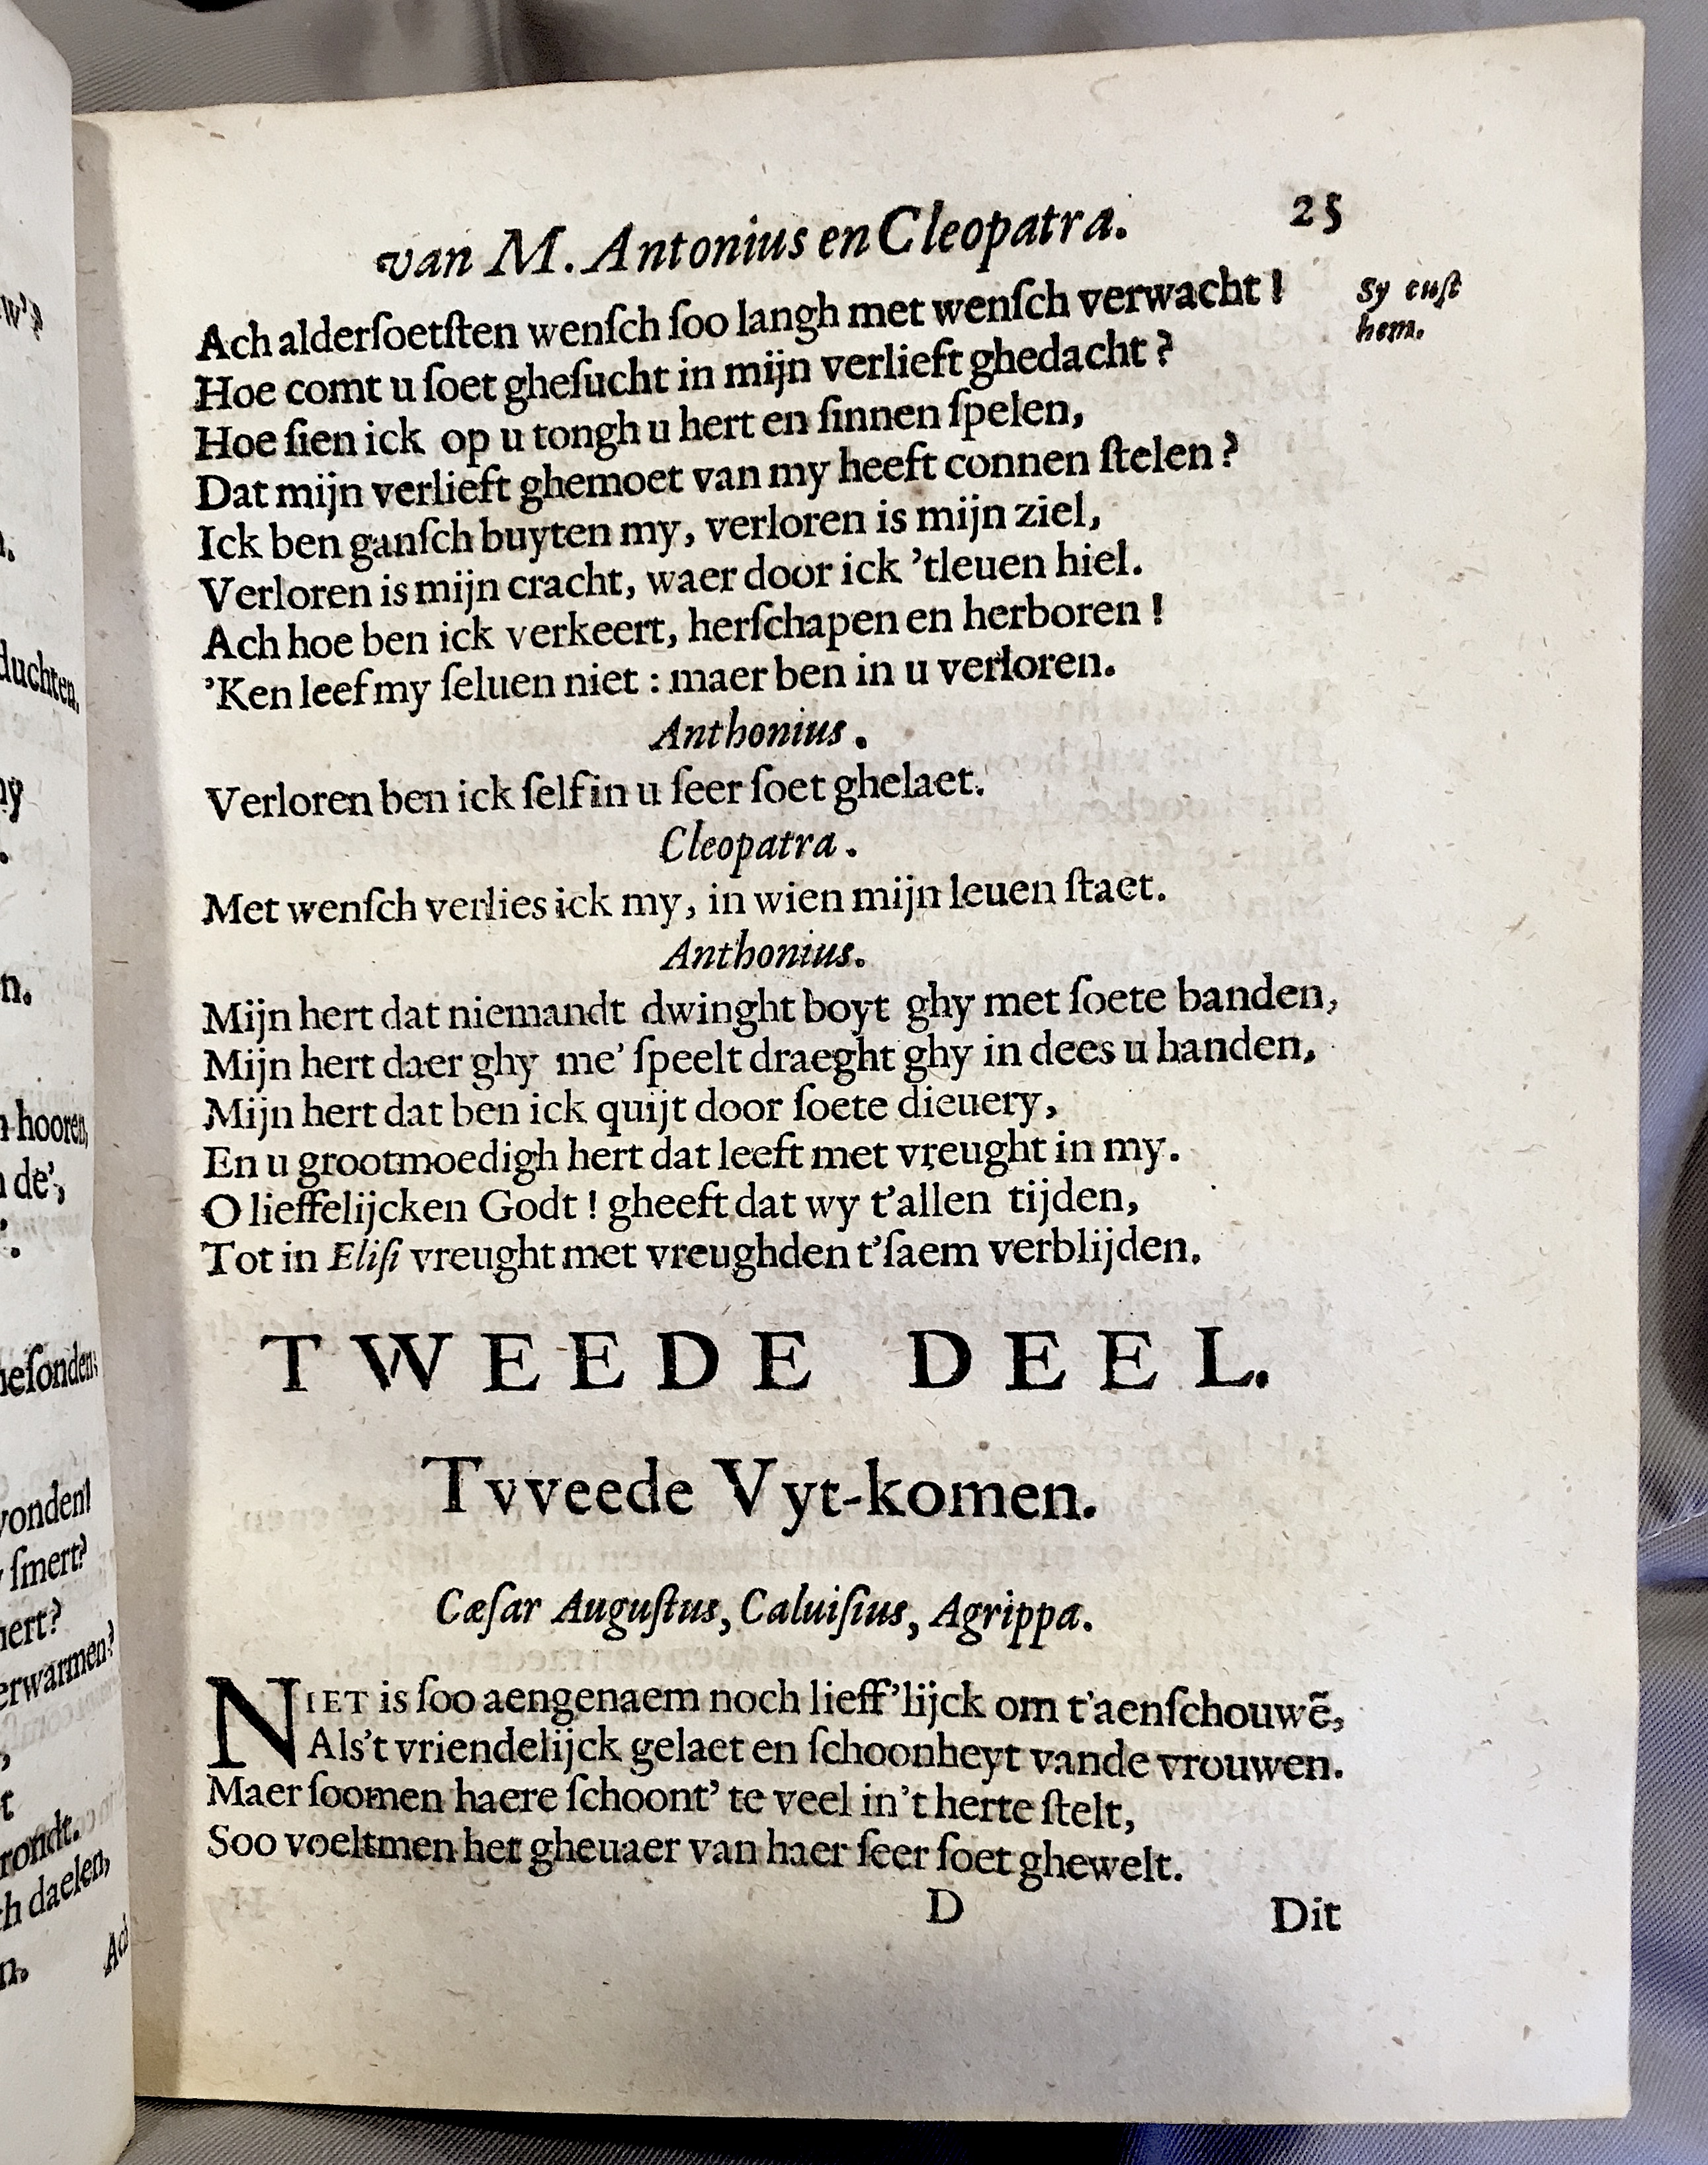 van M. Antonius en Cleopatra. 25
Ach alderſoetſten wenſch ſoo langh met wenſch verwacht !
Sy cuſt
hem.
Hoe comt u ſoet gheſucht in mijn verlieft ghedacht ?
Hoe ſien ick op u tongh u hert en ſinnen ſpelen,
Dat mijn verlieft ghemoet van my heeft connen ſtelen ?
Ick ben ganſch buyten my, verloren is mijn ziel,
Verloren is mijn cracht, waer door ick ’tleuen hiel.
Ach hoe ben ick verkeert, herſchapen en herboren !
’Ken leef my ſeluen niet : maer ben in u verloren.
Anthonius.
Verloren ben ick ſelf in u ſeer ſoet ghelaet.
Cleopatra.
Met wenſch verlies ick my, in wien mijn leuen ſtaet.
Anthonius.
Mijn hert dat niemandt dwinght boyt ghy met ſoete banden,
Mijn hert daer ghy me’ ſpeelt draeght ghy in dees u handen,
Mijn hert dat ben ick quijt door ſoete dieuery,
En u grootmoedigh hert dat leeft met vreught in my.
O lieffelijcken Godt ! gheeft dat wy t’allen tijden,
Tot in Eliſi vreught met vreughden t’ſaem verblijden.
TWEEDE DEEL.
Tvveede Vyt-komen.
Cæſar Auguſtus, Caluiſius, Agrippa.
NIET is ſoo aengenaem noch lieff’lijck om t’aenſchouwẽ,
Als’t vriendelijck gelaet en ſchoonheyt vande vrouwen.
Maer ſoomen haere ſchoont’ te veel in’t herte ſtelt,
Soo voeltmen het gheuaer van haer ſeer ſoet ghewelt.
D Dit
duchten.
hooren,
de’,
ſmert?
daelen,
Ach